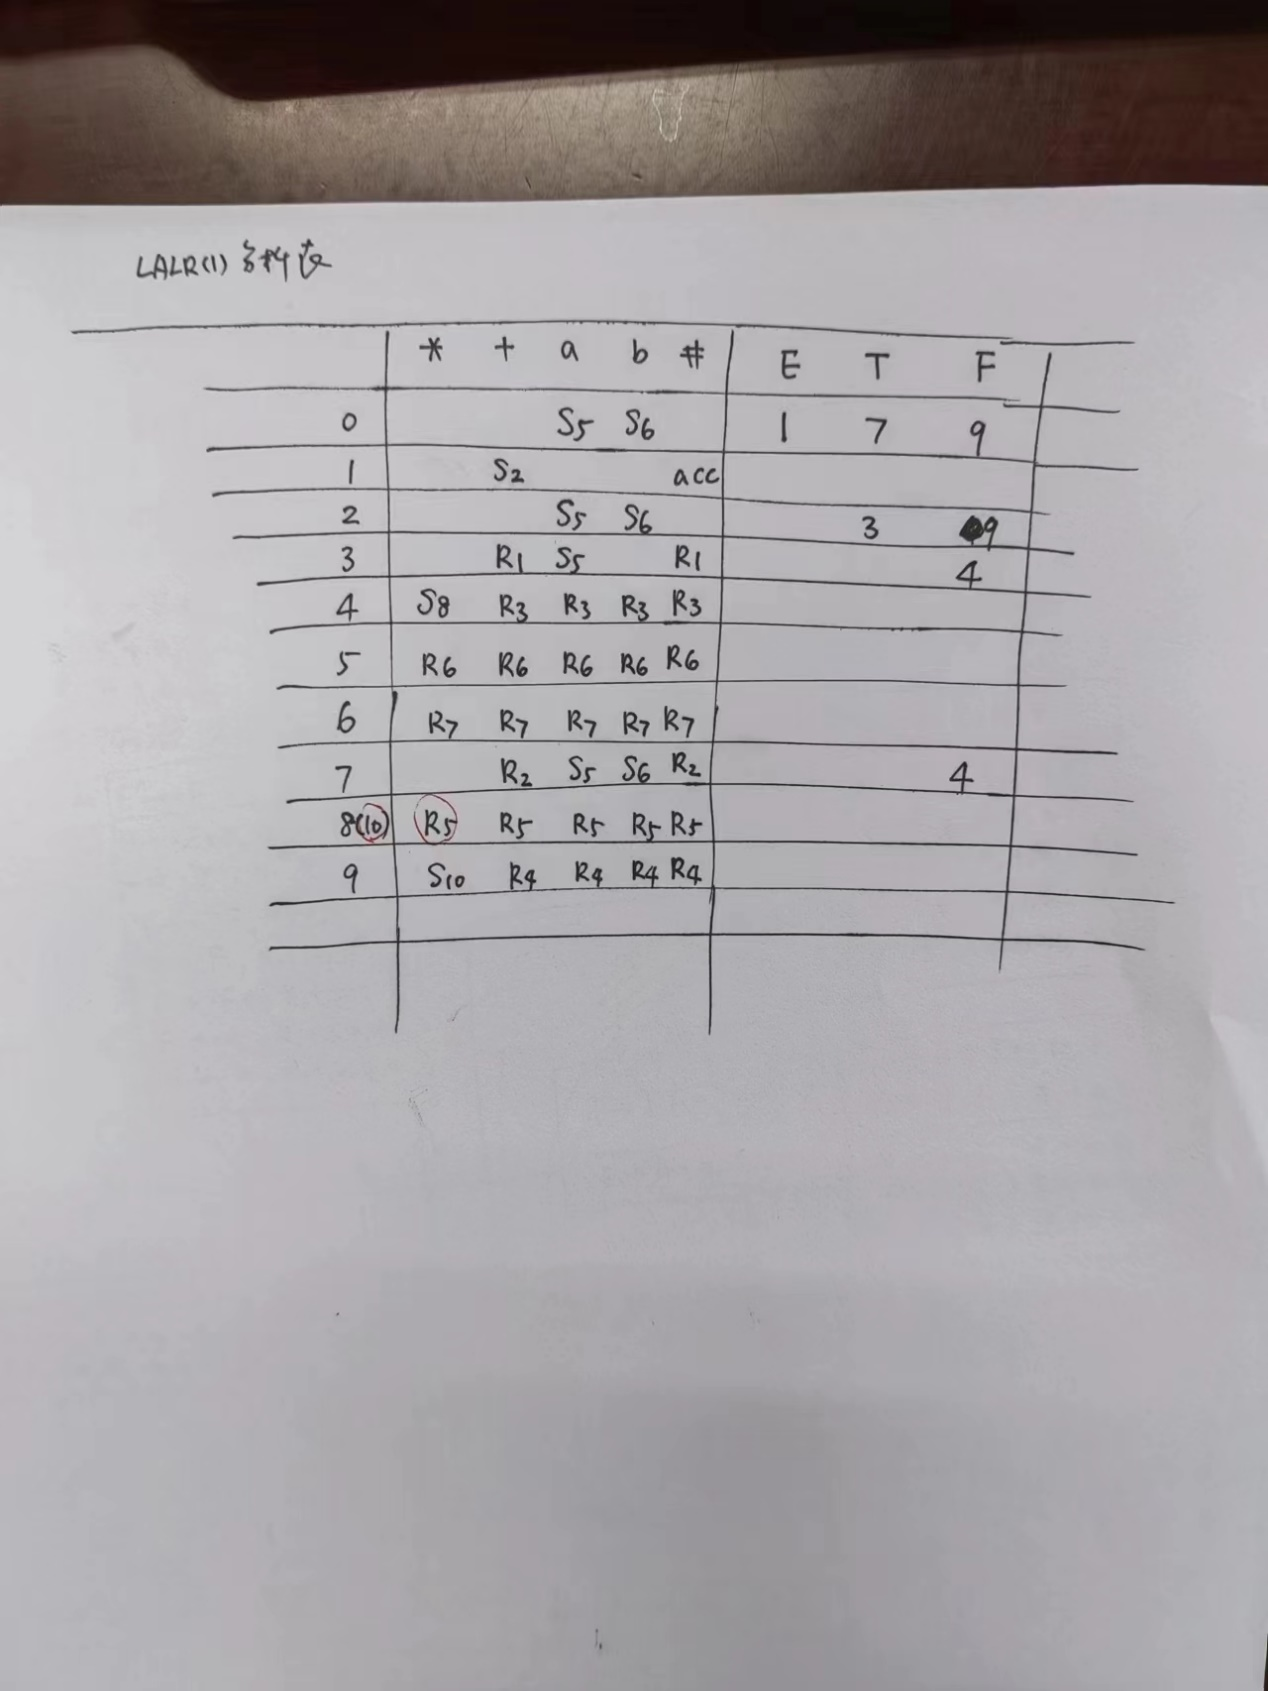 LALR(1) 分析表
* + a b # E T F
0 S5 S6 1 7 9
1 S2 acc
2 S5 S6 3 9
3 R1 S5 R1 4
4 S8 R3 R3 R3 R3
5 R6 R6 R6 R6 R6
6 R7 R7 R7 R7 R7
7 R2 S5 S6 R2 4
8(10) R5 R5 R5 R5 R5
9 S10 R4 R4 R4 R4